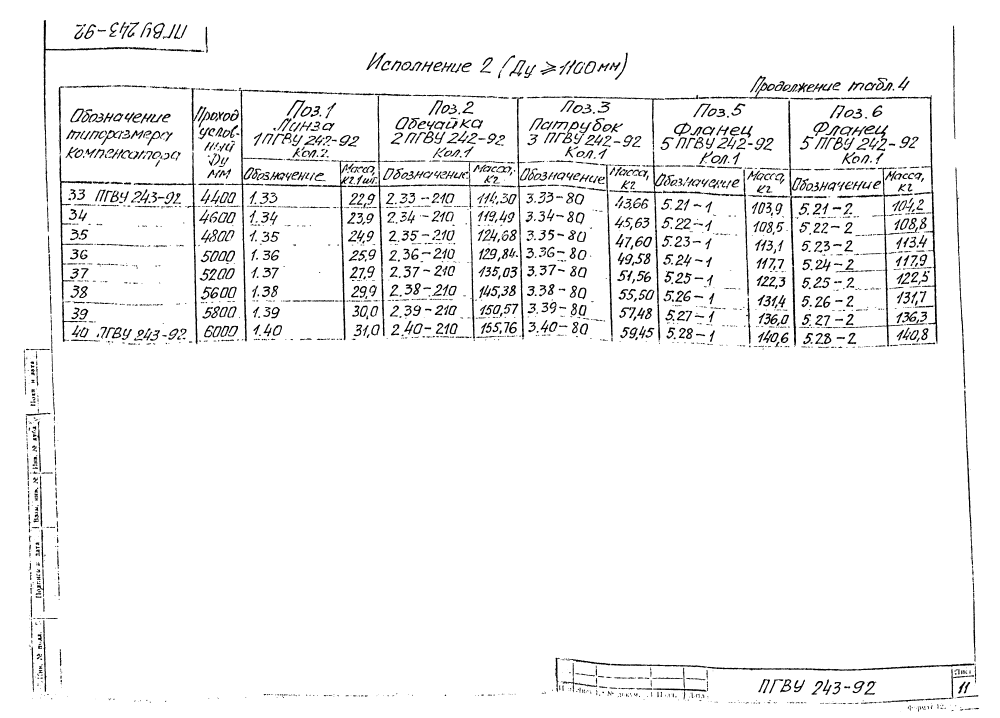 ПГВУ 243-92
Исполнение 2 (Ду ≥ 1100 мм)
Продолжение табл. 4
Обозначение типоразмера компенсатора | Проход условный Ду мм | Поз.1 Линза 1 ПГВУ 242-92 | Поз.2 Обечайка 2 ПГВУ 242-92 Кол.1 | Поз.3 Патрубок 3 ПГВУ 242-92 Кол.1 | Поз.5 Фланец 5 ПГВУ 242-92 Кол.1 | Поз.6 Фланец 5 ПГВУ 242-92 Кол.1
Обозначение | Масса, кг 1 шт. | Обозначение | Масса, кг | Обозначение | Масса, кг | Обозначение | Масса, кг | Обозначение | Масса, кг
33 ПГВУ 243-92 | 4400 | 1.33 | 22,9 | 2.33-210 | 114,30 | 3.33-80 | 43,66 | 5.21-1 | 103,9 | 5.21-2 | 104,2
34 | 4600 | 1.34 | 23,9 | 2.34-210 | 119,49 | 3.34-80 | 45,63 | 5.22-1 | 108,5 | 5.22-2 | 108,8
35 | 4800 | 1.35 | 24,9 | 2.35-210 | 124,68 | 3.35-80 | 47,60 | 5.23-1 | 113,1 | 5.23-2 | 113,4
36 | 5000 | 1.36 | 25,9 | 2.36-210 | 129,84 | 3.36-80 | 49,58 | 5.24-1 | 117,7 | 5.24-2 | 117,9
37 | 5200 | 1.37 | 27,9 | 2.37-210 | 135,03 | 3.37-80 | 51,56 | 5.25-1 | 122,3 | 5.25-2 | 122,5
38 | 5600 | 1.38 | 29,9 | 2.38-210 | 145,38 | 3.38-80 | 55,50 | 5.26-1 | 131,4 | 5.26-2 | 131,7
39 | 5800 | 1.39 | 30,0 | 2.39-210 | 150,57 | 3.39-80 | 57,48 | 5.27-1 | 136,0 | 5.27-2 | 136,3
40 ПГВУ 243-92 | 6000 | 1.40 | 31,0 | 2.40-210 | 155,76 | 3.40-80 | 59,45 | 5.28-1 | 140,6 | 5.28-2 | 140,8
Подп. и дата
Инв. № дубл.
Взам. инв. №
Подпись и дата
Инв. № подл.
ПГВУ 243-92
Лист
11